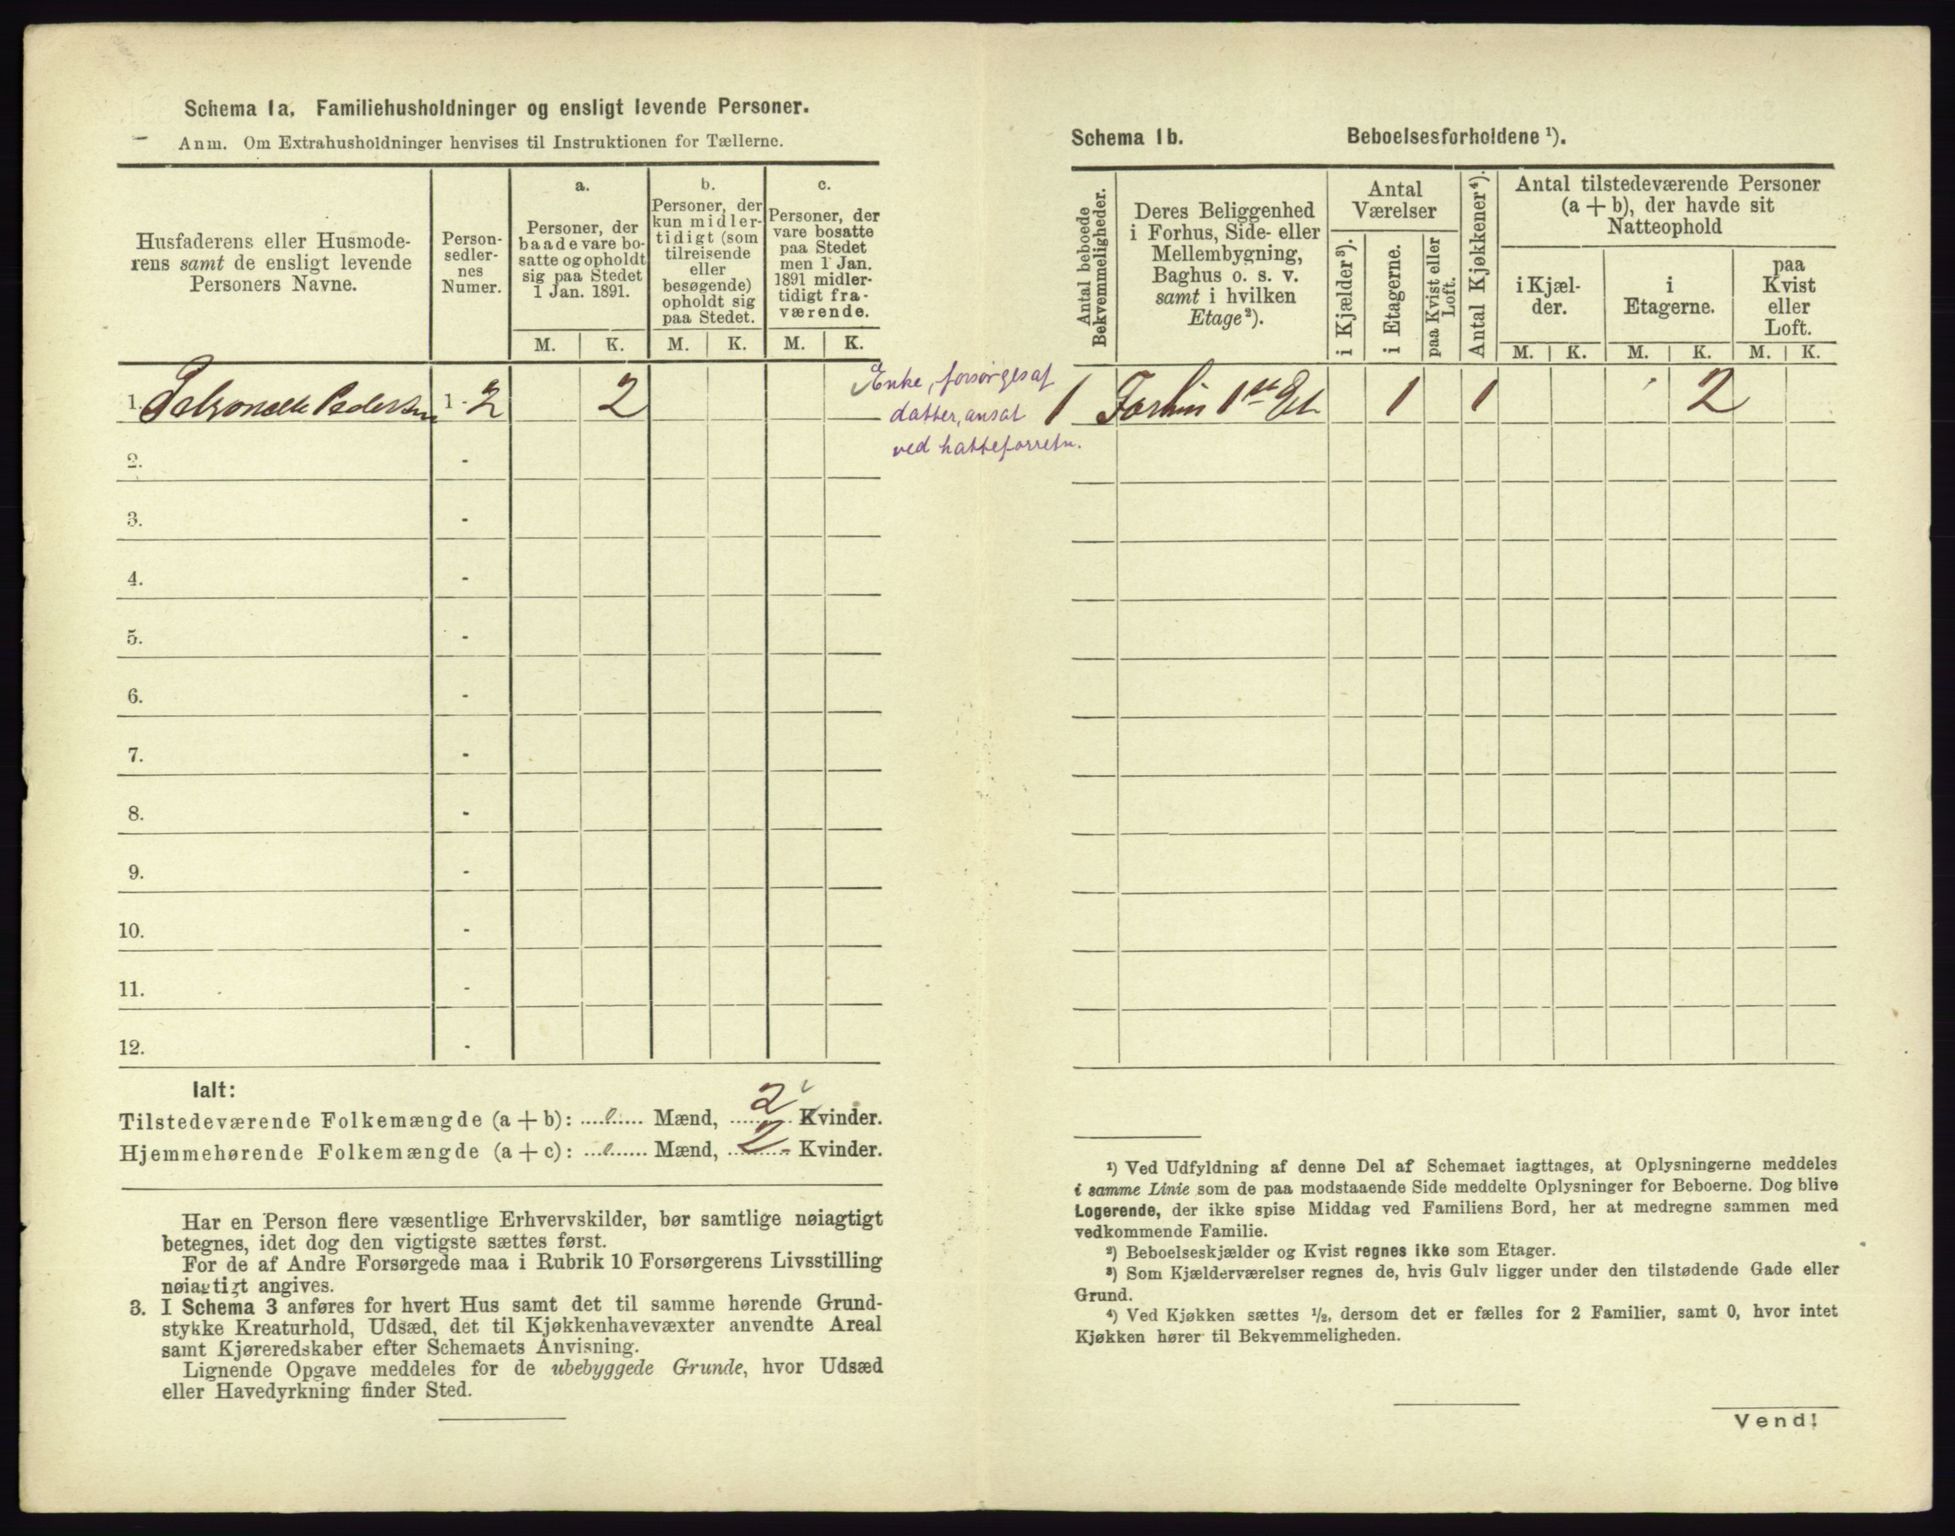 Schema 1a. Familiehusholdninger og ensligt levende Personer.
Anm. Om Extrahusholdninger henvises til Instruktionen for Tællerne.
Husfaderens eller Husmode-
rens samt de ensligt levende
Personers Navne.
Person-
sedler-
nes
Numer.
a.
Personer, der
baade vare bo-
satte og opholdt
sig paa Stedet
1 Jan. 1891.
b.
Personer, der
kun midler-
tidigt (som
tilreisende
eller
besøgende)
opholdt sig
paa Stedet.
c.
Personer, der
vare bosatte
paa Stedet
men 1 Jan.
1891 midler-
tidigt fra-
værende.
M. K. M. K. M. K.
1. Petronelle Pedersen 1-2 2
Enke, forsørges af
datter, ansat
ved hatteforretn.
2. -
3. -
4. -
5. -
6. -
7. -
8. -
9. -
10. -
11. -
12. -
Ialt:
Tilstedeværende Folkemængde (a + b): Mænd, 2 Kvinder.
Hjemmehørende Folkemængde (a + c): Mænd, 2 Kvinder.
Har en Person flere væsentlige Erhvervskilder, bør samtlige nøiagtigt
betegnes, idet dog den vigtigste sættes først.
For de af Andre Forsørgede maa i Rubrik 10 Forsørgerens Livsstilling
nøiagtigt angives.
3. I Schema 3 anføres for hvert Hus samt det til samme hørende Grund-
stykke Kreaturhold, Udsæd, det til Kjøkkenhavevæxter anvendte Areal
samt Kjøreredskaber efter Schemaets Anvisning.
Lignende Opgave meddeles for de ubebyggede Grunde, hvor Udsæd
eller Havedyrkning finder Sted.
Schema 1b. Beboelsesforholdene ¹).
Antal beboede
Bekvemmeligheder.
Deres Beliggenhed
i Forhus, Side- eller
Mellembygning,
Baghus o. s. v.
samt i hvilken
Etage²).
Antal
Værelser
i Kjælder³).
i Etagerne.
paa Kvist eller
Loft.
Antal Kjøkkener⁴).
Antal tilstedeværende Personer
(a + b), der havde sit
Natteophold
i Kjæl-
der.
i
Etagerne.
paa
Kvist
eller
Loft.
M. K. M. K. M. K.
1 Forhus 1ste Et. 1 1 2
¹) Ved Udfyldning af denne Del af Schemaet iagttages, at Oplysningerne meddeles
i samme Linie som de paa modstaaende Side meddelte Oplysninger for Beboerne. Dog blive
Logerende, der ikke spise Middag ved Familiens Bord, her at medregne sammen med
vedkommende Familie.
²) Beboelseskjælder og Kvist regnes ikke som Etager.
³) Som Kjælderværelser regnes de, hvis Gulv ligger under den tilstødende Gade eller
Grund.
⁴) Ved Kjøkken sættes ½, dersom det er fælles for 2 Familier, samt 0, hvor intet
Kjøkken hører til Bekvemmeligheden.
Vend!